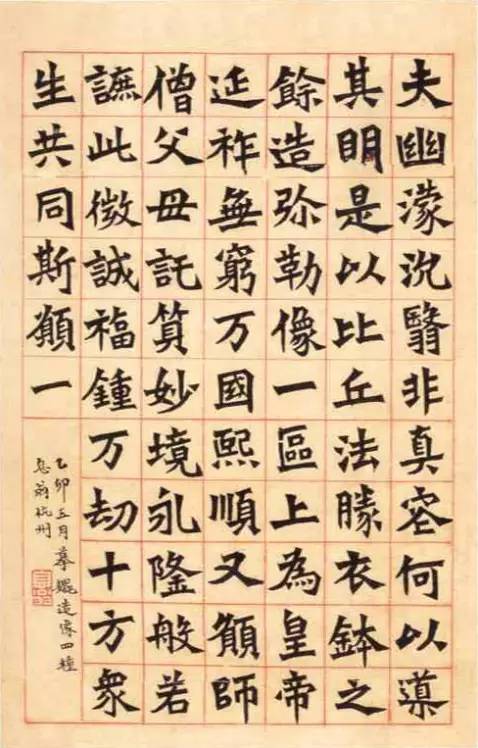 夫幽濛沉翳非真容何以導
其明是以比丘法勝衣鉢之
餘造弥勒像一區上為皇帝
延祚無窮万國熙順又願師
僧父母託算妙境永隆般若
謶此微誠福鍾万劫十方衆
生共同斯願一
乙卯五月摹魏造像四種
息翁杭州